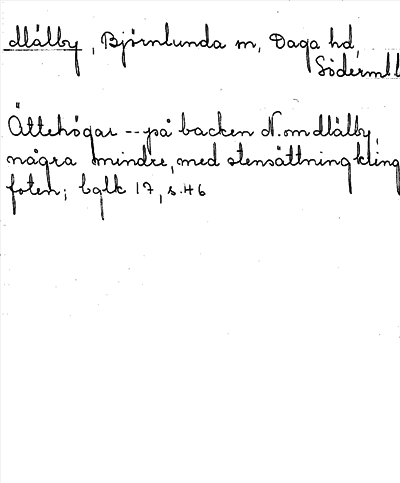 Mälby, Björnlunda sn, Daga hd,
Söderml
Ättehögar -- på backen N. om Mälby,
några mindre, med stensättning kring
foten; bglk 17, s. 46